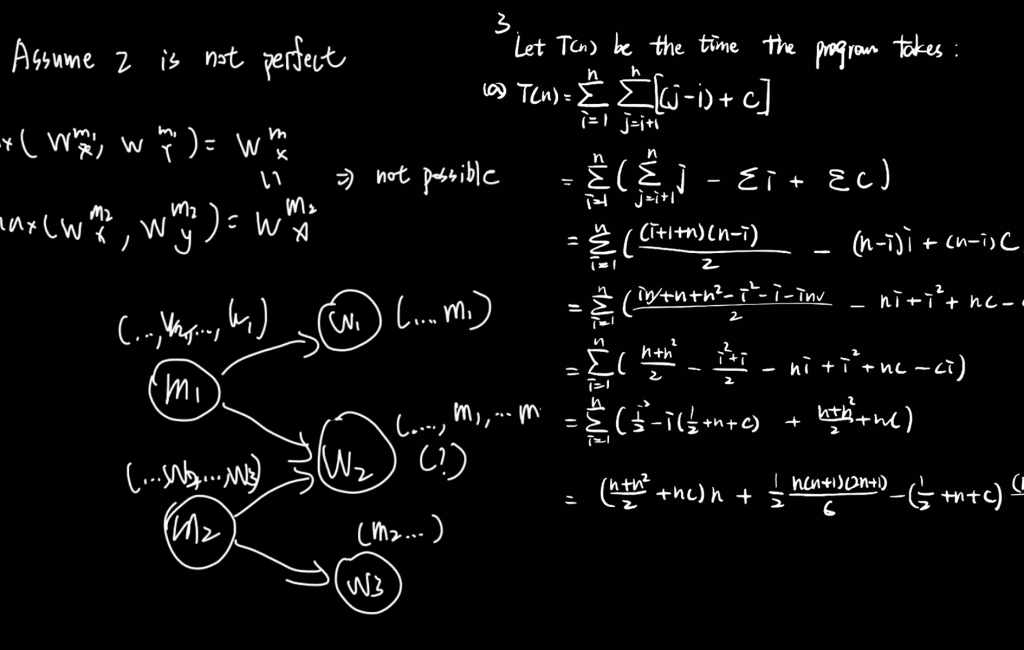 Assume z is not perfect
x(W^{m_1}_x, W^{m_1}_y) = W^{m}_x
⇒ not possible
max(W^{m_2}_x, W^{m_2}_y) = W^{m_2}_x
w_1 (....m_1)
m_1
w_2 (...., m_1, ...m
(?)
m_2
(m_2...)
w_3
3
Let T(n) be the time the program takes:
(a) T(n) = ∑_{i=1}^{n} ∑_{j=i+1}^{n} [(j-i) + c]
= ∑_{i=1}^{n} ( ∑_{j=i+1}^{n} j - ∑i + ∑c )
= ∑_{i=1}^{n} ( (i+1+n)(n-i)/2 - (n-i)i + (n-i)c
= ∑_{i=1}^{n} ( (in+n+n²-i²-i-in)/2 - ni+i²+nc-
= ∑_{i=1}^{n} ( (n+n²)/2 - (i²+i)/2 - ni+i²+nc-ci )
= ∑_{i=1}^{n} ( i²/2 - i(1/2+n+c) + (n+n²)/2 + nc )
= ((n+n²)/2 + nc)n + 1/2 n(n+1)(2n+1)/6 - (1/2+n+c)